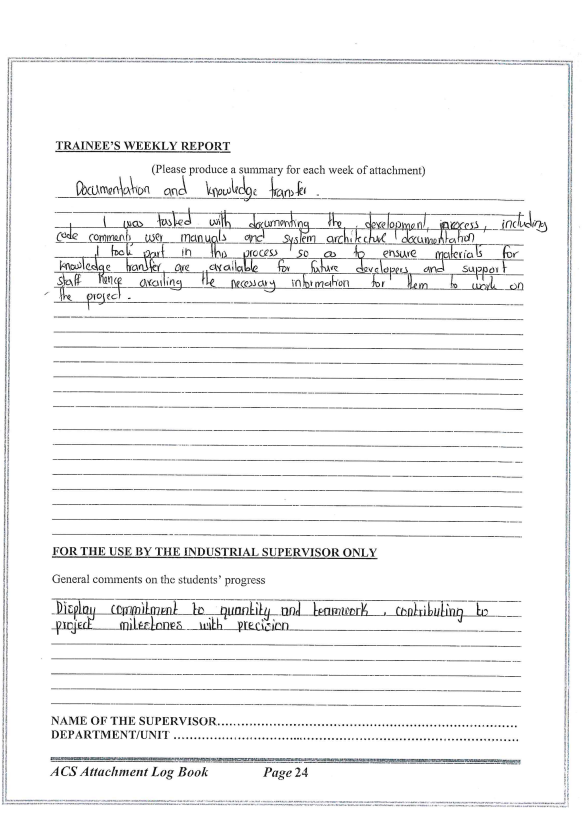 TRAINEE'S WEEKLY REPORT
(Please produce a summary for each week of attachment)
Documentation and knowledge transfer.
I was tasked with documenting the development, including
code comment, user manuals and system architecture documentation
I took part in this process so as to ensure materials for
knowledge transfer are available for future developers and support
staff hence availing the necessary information for them to work on
the project.
FOR THE USE BY THE INDUSTRIAL SUPERVISOR ONLY
General comments on the students' progress
Display commitment to quantity and teamwork, contributing to
project milestones with precision
NAME OF THE SUPERVISOR..................................................................
DEPARTMENT/UNIT ..........................................................................
ACS Attachment Log Book Page 24